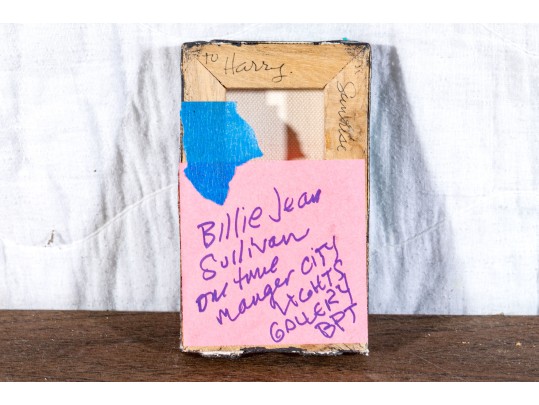 to Harry.
Sunrise
Billie Jean
Sullivan
one time
manger CITY
LIGHTS
GALLERY
BPT